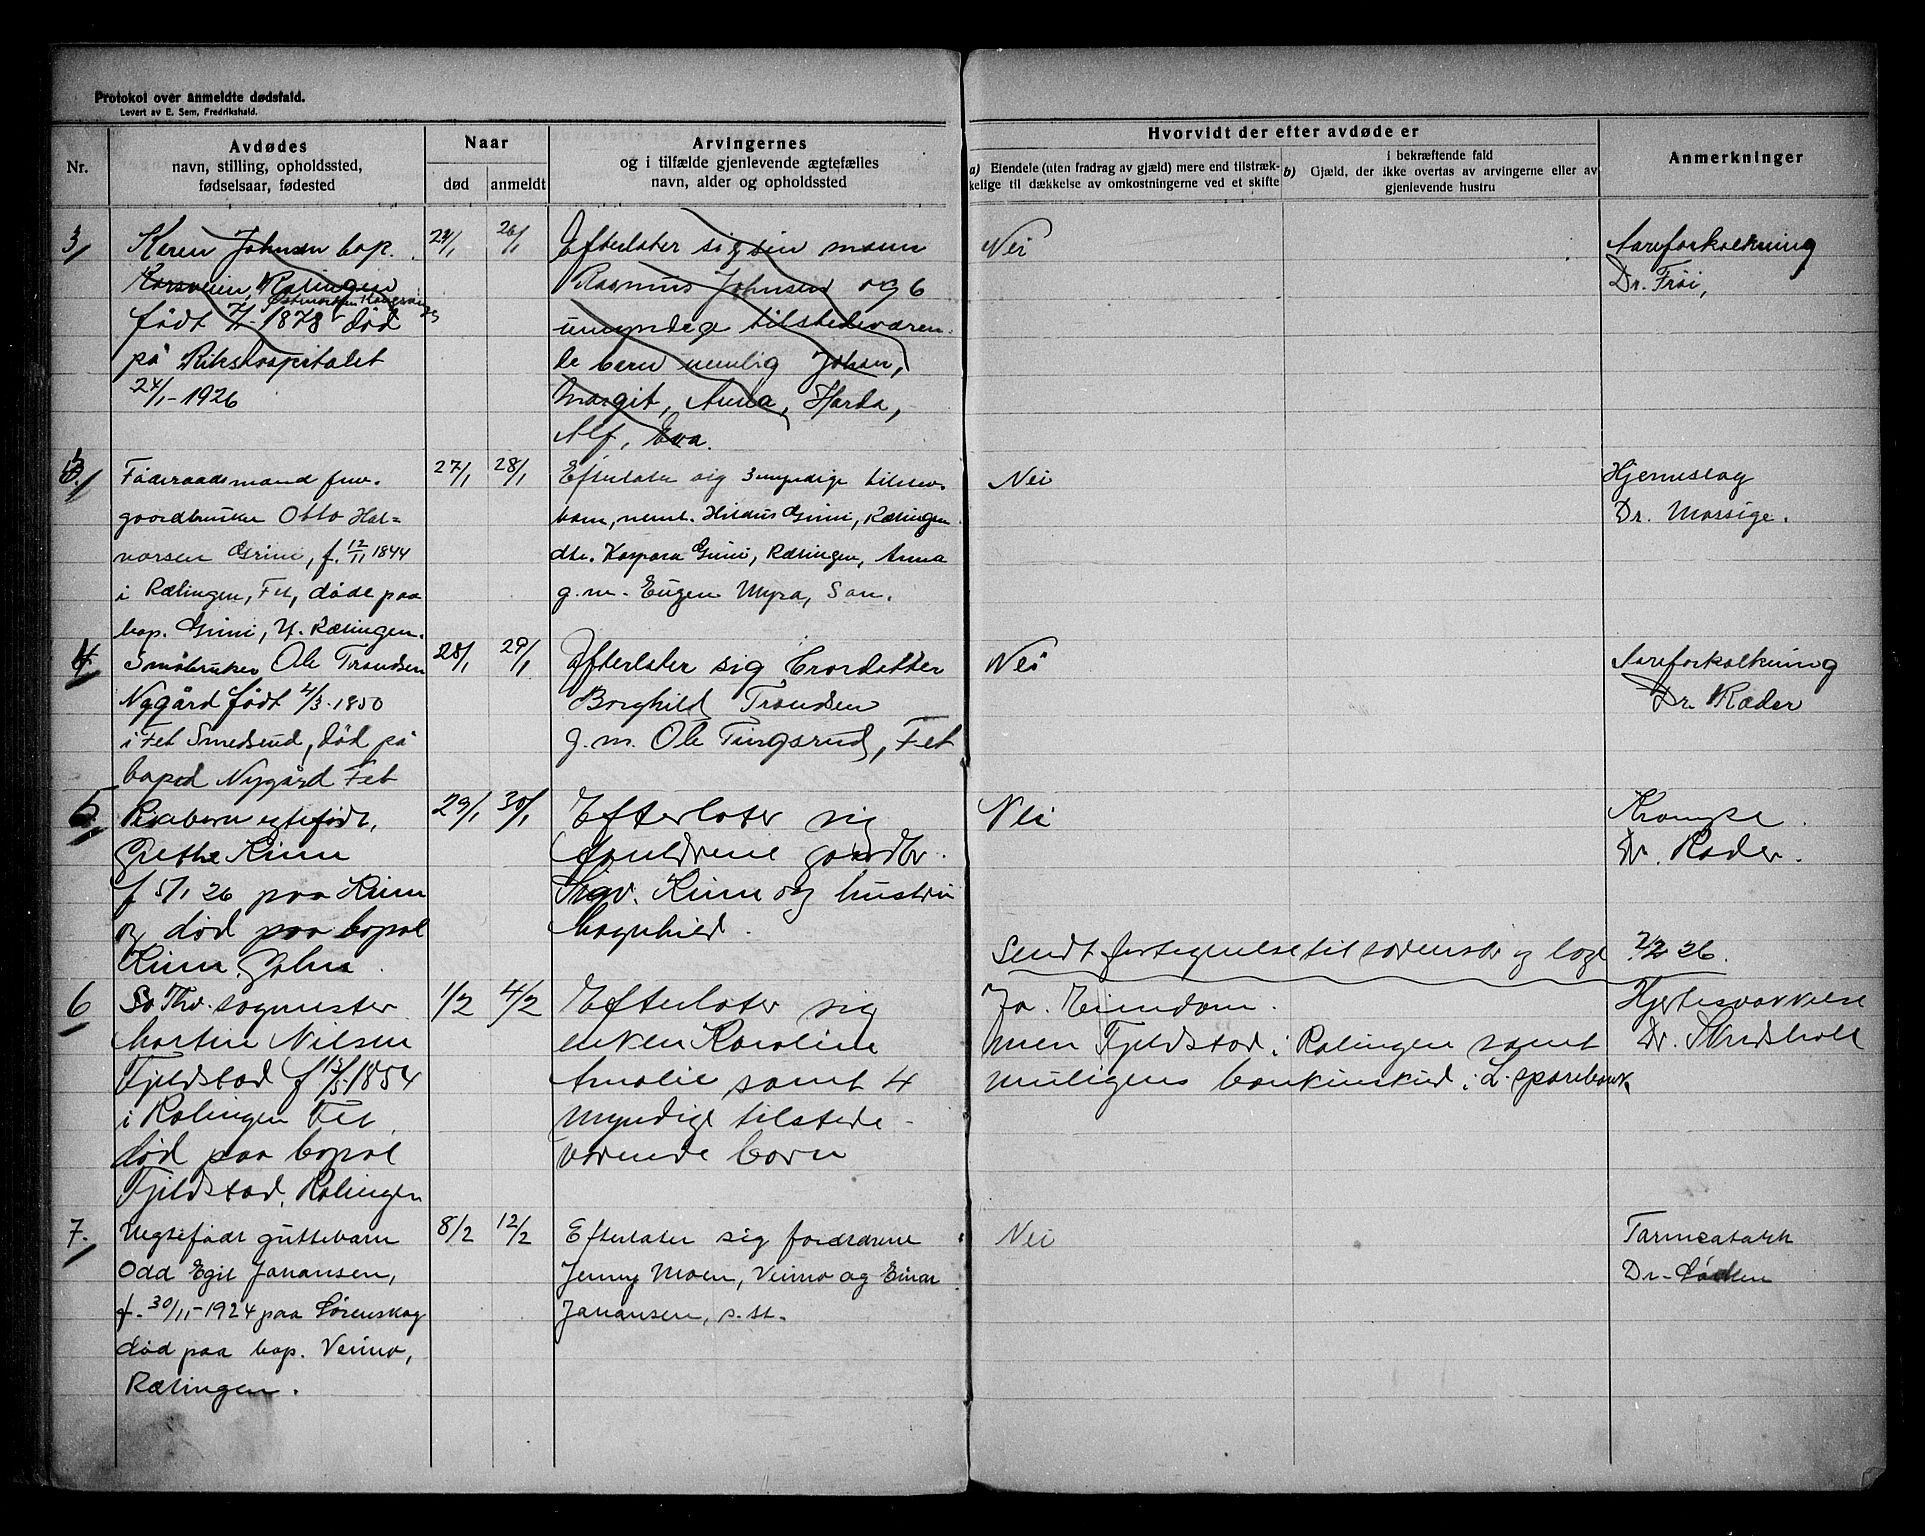 Protokol over anmeldte dødsfald.
Levert av E. Sem, Fredrikshald.
Nr.
Avdødes
navn, stilling, opholdssted,
fødselsaar, fødested
Naar
død
anmeldt
Arvingernes
og i tilfælde gjenlevende ægtefælles
navn, alder og opholdssted
Hvorvidt der efter avdøde er
a) Eiendele (uten fradrag av gjæld) mere end tilstræk-
kelige til dækkelse av omkostningerne ved et skifte
i bekræftende fald
b) Gjæld, der ikke overtas av arvingerne eller av
gjenlevende hustru
Anmerkninger
3/
Karen Johnsen bop.
Korsveien, Rælingen
født 7/1-1878 død
på Rikshospitalet
24/1-1926
24/1
26/1
Efterlater sig sin mann
Rasmus Johnsen og 6
umyndige tilstedeværen-
de barn nemlig Johan,
Margit, Anna, Harda,
Alf, Eva.
Nei
Aareforkalkning
Dr. Frøi,
3/
Føderaadsmand fhv.
gaardbruker Otto Hal-
vorsen Grini, f. 12/11 1844
i Rælingen, Fet, døde paa
bop. Grini, N. Rælingen.
27/1
28/1
Efterlater sig 3 myndige tilstev.
barn, neml. Hildus Grini, Rælingen
dtr. Kaspara Grini, Rælingen, Anna
g.m. Eugen Myra, San.
Nei
Hjerneslag
Dr. Mossige.
4.
Småbruker Ole Trondsen
Nygård født 4/3-1850
i Fet Smedsrud, død på
bopæl Nygård Fet
28/1
29/1
Efterlater sig brordatter
Borghild Trondsen
g.m. Ole Tingsrud, Fet
Nei
Aareforkalkning
Dr. Ræder
5
Pikebarn egtefødt,
Grethe Kinn
f 5/1 26 paa Kinn
og død paa bopæl
Kinn,
29/1
30/1
Efterlater sig
foreldrene gaardbr.
Sigv. Kinn og hustru
Magnhild.
Nei
Krampe
Dr. Ræder.
Sendt fortegnelse til sorensk og
2/2 26.
6
Martin Nilsen
Fjeldstad f 13/5-1854
i Rælingen Fet,
død paa bopæl
Fjeldstad, Rælingen
1/2
4/2
Efterlater sig
enken Karoline
Amalie samt 4
myndige tilstede-
værende barn
Ja. Eiendom.
men Fjeldstad i Rælingen samt
muligens bankinskud i L. sparebank
Hjertesvækkelse
7.
Uegtefødt guttebarn
Odd Egil Johansen,
f. 30/11-1924 paa Lørenskog
død paa bop. Veimo,
Rælingen.
8/2
12/2
Efterlater sig forældrene
Jenny Moen, Veimo og Einar
Johansen, s. st.
Nei
Tarmcatarh